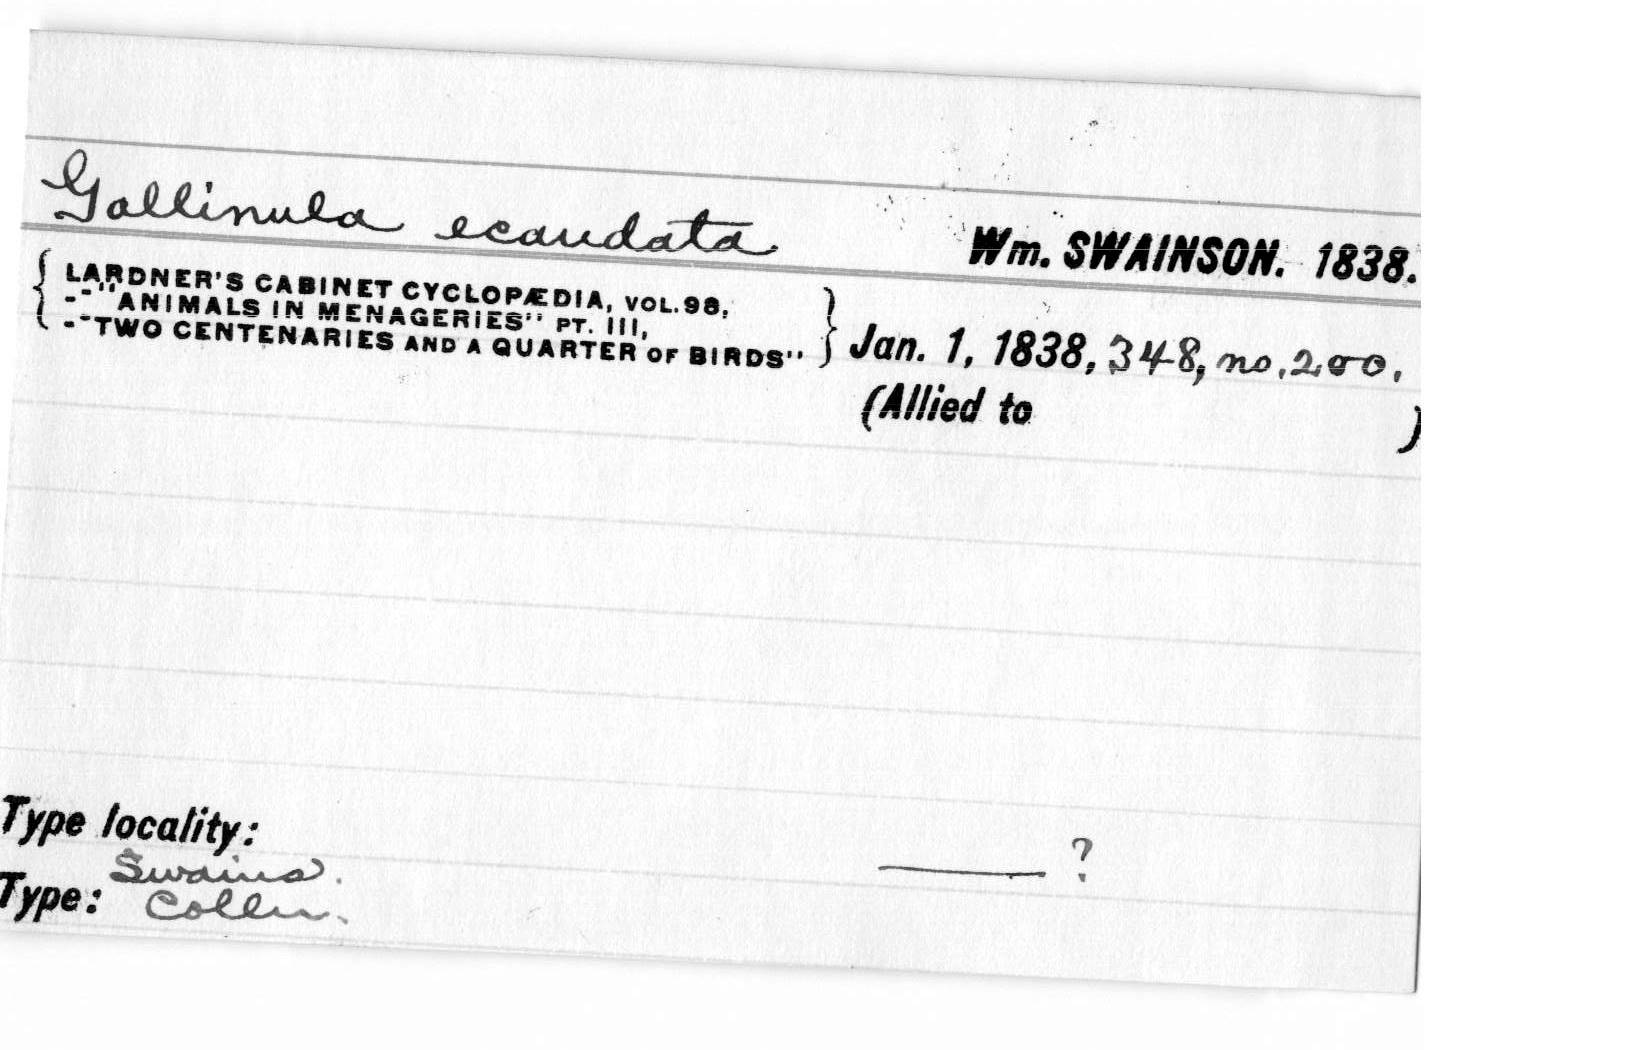 Gallinula ecaudata
Wm. SWAINSON. 1838.
LARDNER'S CABINET CYCLOPÆDIA, VOL. 98,
--"ANIMALS IN MENAGERIES" PT. III,
--"TWO CENTENARIES AND A QUARTER OF BIRDS"
Jan. 1, 1838, 348, no. 200.
(Allied to )
Type locality:
?
Swains.
Type: Colln.